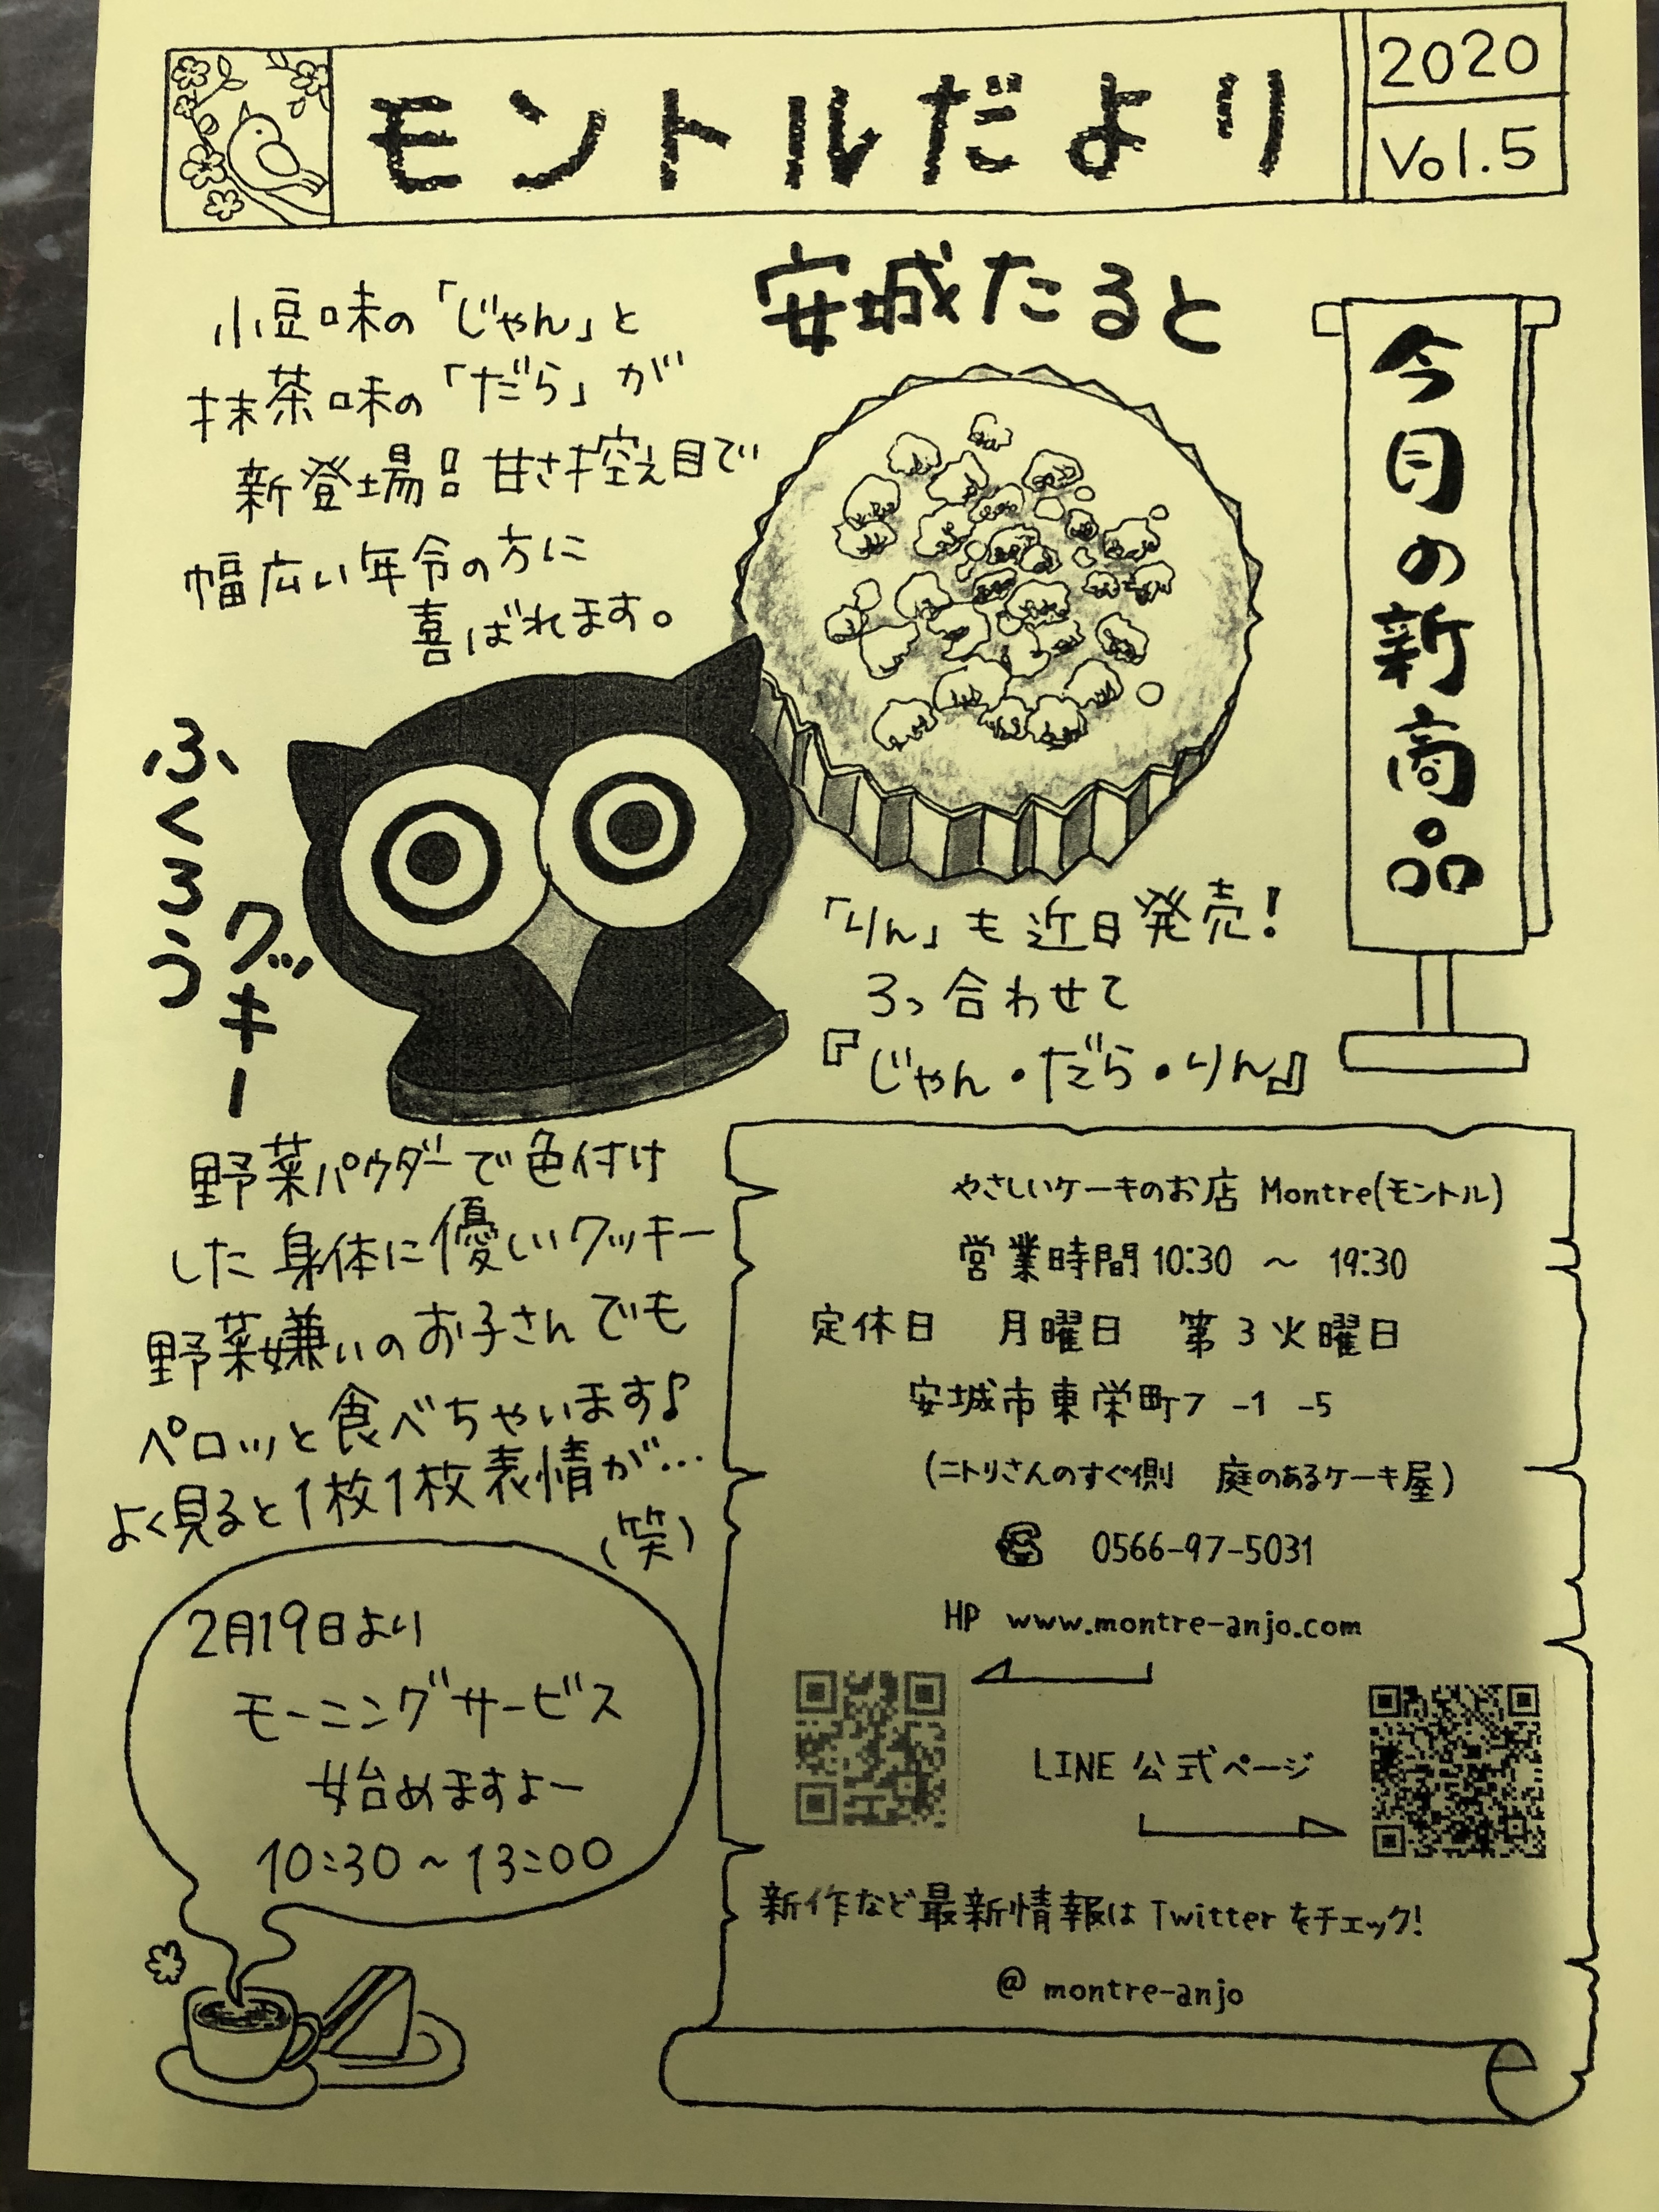 モントルだより
2020
Vol.5
今月の新商品
安城たると
小豆味の「じゃん」と
抹茶味の「だら」が
新登場!! 甘さ控え目で
幅広い年令の方に
喜ばれます。
「りん」も近日発売!
3つ合わせて
『じゃん・だら・りん』
ふくろう
クッキー
野菜パウダーで色付け
した身体に優しいクッキー
野菜嫌いのお子さんでも
ペロッと食べちゃいます♪
よく見ると1枚1枚表情が…
(笑)
2月19日より
モーニングサービス
始めますよー
10:30~13:00
やさしいケーキのお店 Montre(モントル)
営業時間 10:30 ~ 19:30
定休日 月曜日 第3火曜日
安城市東栄町7-1-5
(ニトリさんのすぐ側 庭のあるケーキ屋)
☎ 0566-97-5031
HP www.montre-anjo.com
LINE 公式ページ
新作など最新情報は Twitter をチェック!
@ montre-anjo